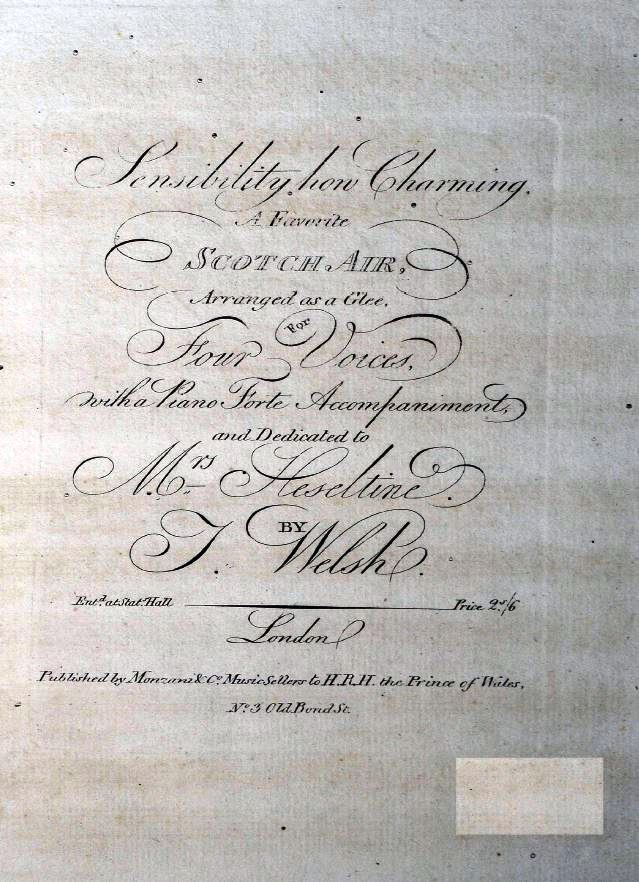 Sensibility, how Charming.
A Favorite
SCOTCH AIR,
Arranged as a Glee,
For
Four Voices,
with a Piano Forte Accompaniment,
and Dedicated to
Mrs Heseltine.
BY
T. Welsh.
Entd. at Stat. Hall Price 2s/6
London
Published by Monzani & Co. Music Sellers to H.R.H. the Prince of Wales,
No. 3 Old Bond St.